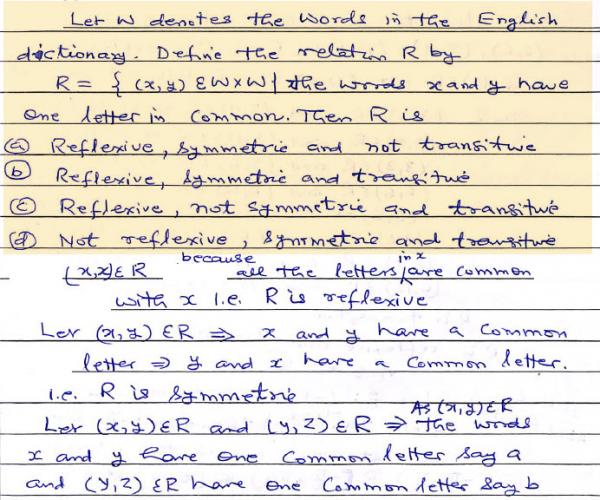 Let W denotes the words in the English
dictionary. Define the relation R by
R = { (x,y) ∈ W×W | the words x and y have
one letter in common. Then R is
(a) Reflexive, symmetric and not transitive
(b) Reflexive, symmetric and transitive
(c) Reflexive, not symmetric and transitive
(d) Not reflexive, symmetric and transitive
(x,x) ∈ R because all the letters in x are common
with x i.e. R is reflexive
Let (x,y) ∈ R ⇒ x and y have a common
letter ⇒ y and x have a common letter.
i.e. R is symmetric
Let (x,y) ∈ R and (y,z) ∈ R ⇒ As (x,y) ∈ R the words
x and y have one common letter say a
and (y,z) ∈ R have one common letter say b